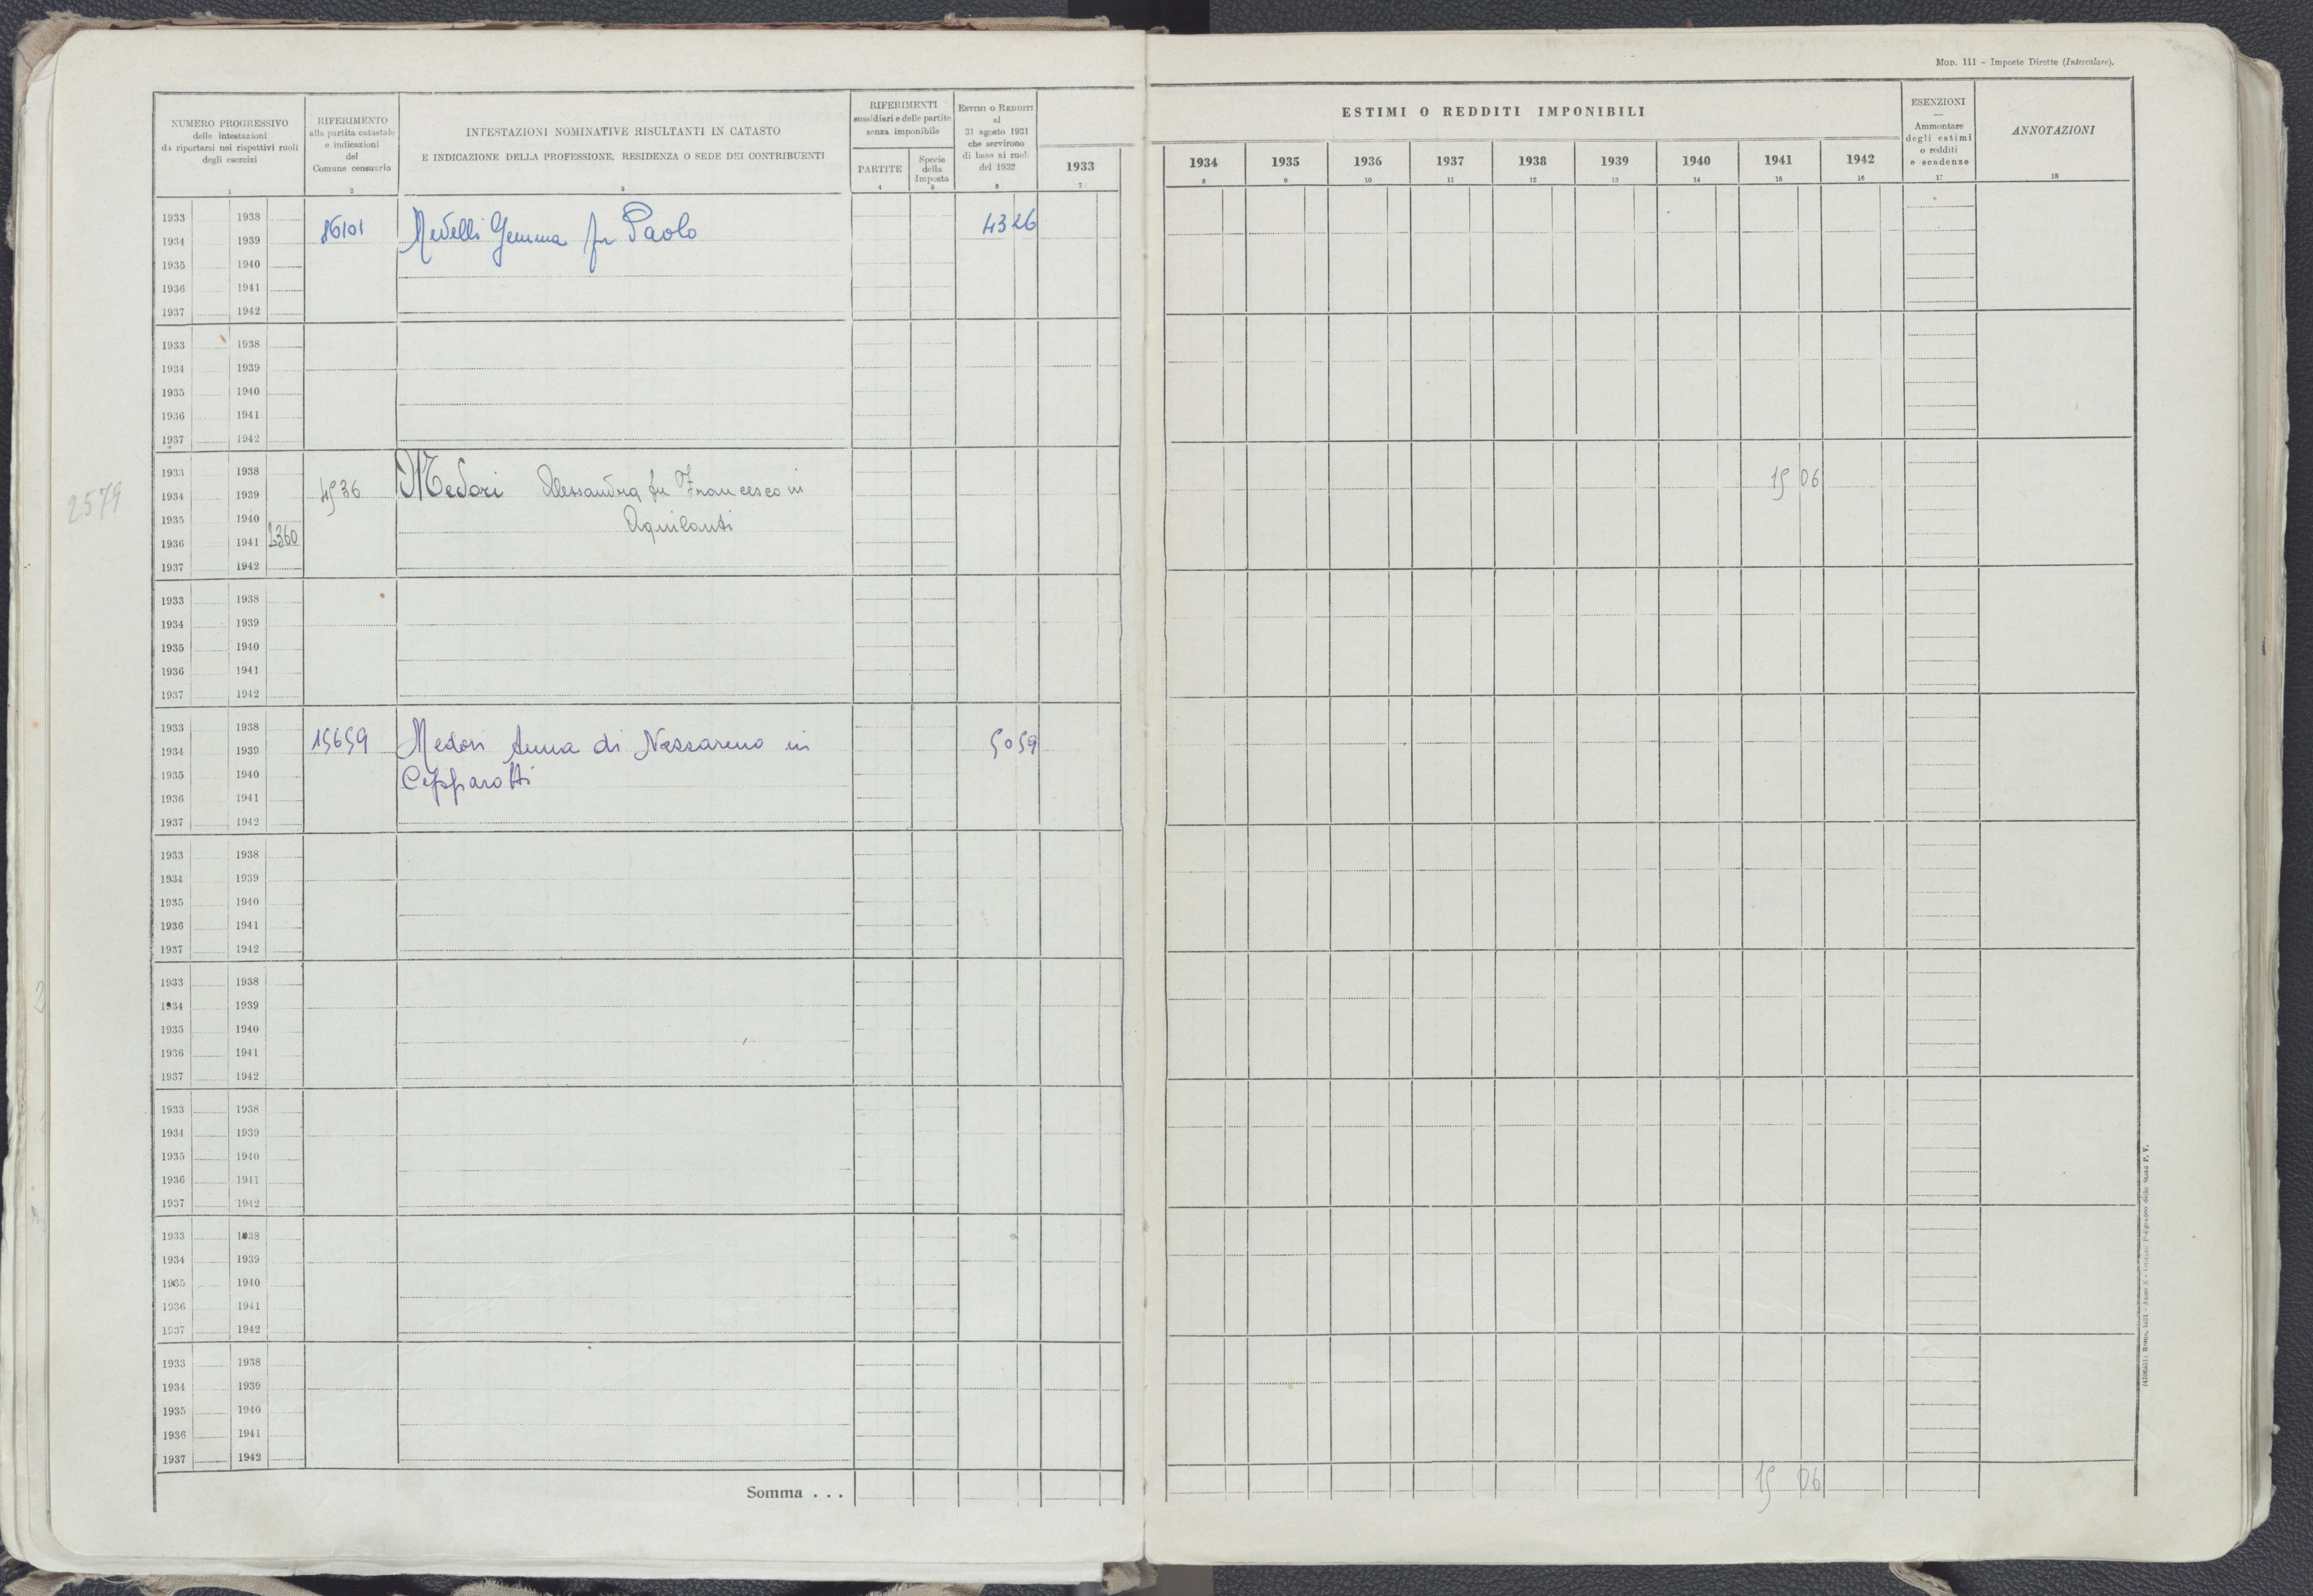 MOD. 111 – Imposte Dirette (Intercalare).
NUMERO PROGRESSIVO
delle intestazioni
da riportarsi nei rispettivi ruoli
degli esercizi
1
RIFERIMENTO
alla partita catastale
e indicazioni
del
Comune censuario
2
INTESTAZIONI NOMINATIVE RISULTANTI IN CATASTO
E INDICAZIONE DELLA PROFESSIONE, RESIDENZA O SEDE DEI CONTRIBUENTI
3
RIFERIMENTI
sussidiari e delle partite
senza imponibile
PARTITE
4
Specie
della
Imposta
5
ESTIMI O REDDITI
al
31 agosto 1931
che servirono
di base ai ruoli
del 1932
6
1933
7
ESTIMI O REDDITI IMPONIBILI
1934 1935 1936 1937 1938 1939 1940 1941 1942
8 9 10 11 12 13 14 15 16
ESENZIONI
—
Ammontare
degli estimi
o redditi
e scadenze
17
ANNOTAZIONI
18
1933 1938
16101 Medelli Gemma fu Paolo 4326
1934 1939
1935 1940
1936 1941
1937 1942
1933 1938
1934 1939
1935 1940
1936 1941
1937 1942
1933 1938
2579 1934 1939 4536 Medori Alessandra fu Francesco in 15 06
1935 1940 Aquilanti
1936 1941 2360
1937 1942
1933 1938
1934 1939
1935 1940
1936 1941
1937 1942
1933 1938
1934 1939 15659 Medori Anna di Nazzareno in 5059
1935 1940 Cepparotti
1936 1941
1937 1942
1933 1938
1934 1939
1935 1940
1936 1941
1937 1942
1933 1938
1934 1939
1935 1940
1936 1941
1937 1942
1933 1938
1934 1939
1935 1940
1936 1941
1937 1942
1933 1938
1934 1939
1935 1940
1936 1941
1937 1942
1933 1938
1934 1939
1935 1940
1936 1941
1937 1942
Somma . . . 15 06